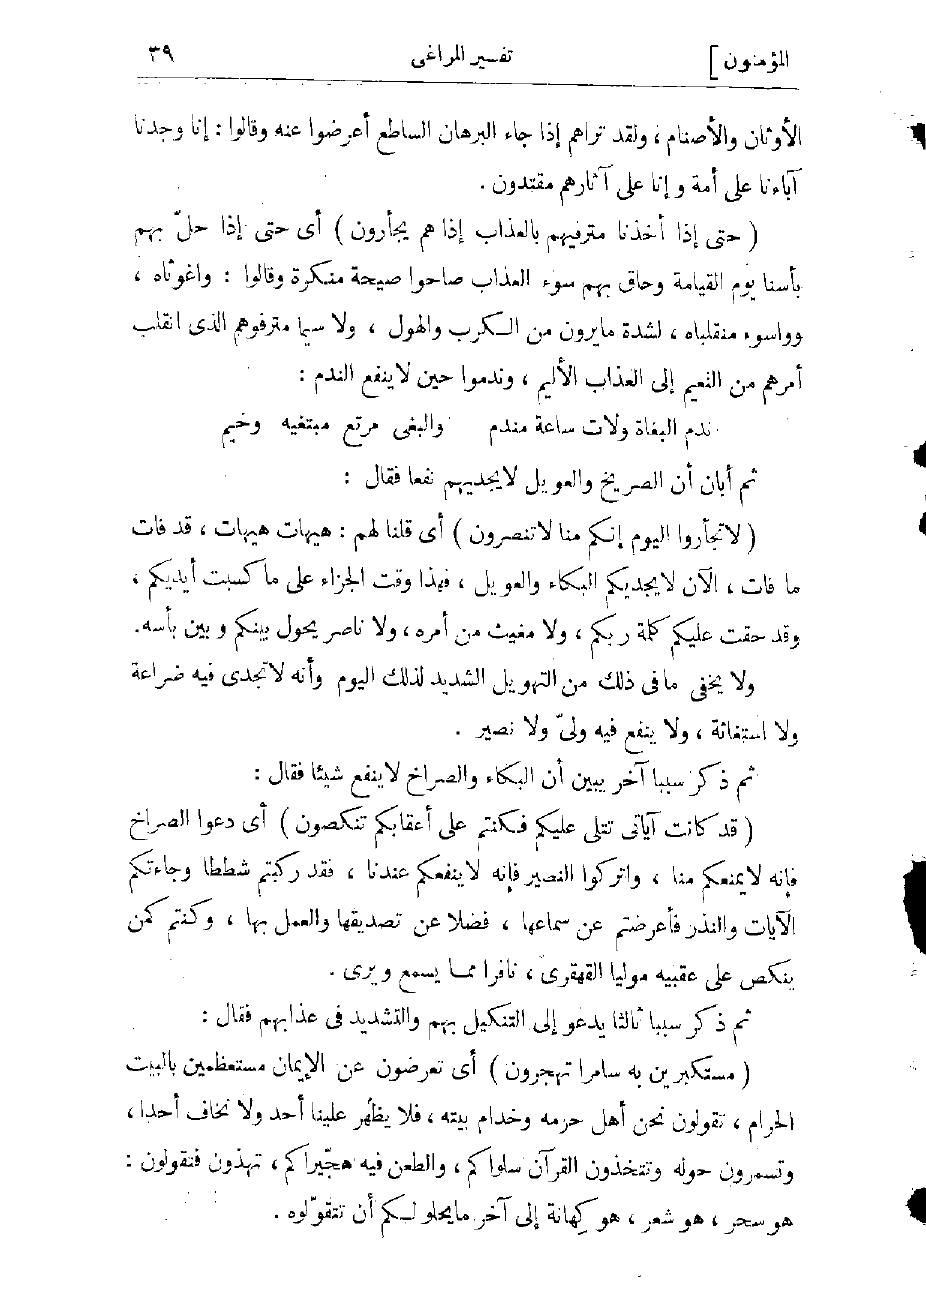 المؤمنون] تفسير المراغى ٣٩
الأوثان والأصنام ، ولقد تراهم إذا جاء البرهان الساطع أعرضوا عنه وقالوا : إنا وجدنا
آباءنا على أمة وإنا على آثارهم مقتدون .
( حتى إذا أخذنا مترفيهم بالعذاب إذا هم يجأرون ) أى حتى إذا حلّ بهم
بأسنا يوم القيامة وحاق بهم سوء العذاب صاحوا صيحة منكرة وقالوا : واغوثاه ،
وواسوء منقلباه ، لشدة مايرون من الكرب والهول ، ولا سيما مترفوهم الذى انقلب
أمرهم من النعيم إلى العذاب الأليم ، وندموا حين لاينفع الندم :
ندم البغاة ولات ساعة مندم والبغى مرتع مبتغيه وخيم
ثم أبان أن الصريخ والعويل لايجديهم نفعا فقال :
( لاتجأروا اليوم إنكم منا لاتنصرون ) أى قلنا لهم : هيهات هيهات ، قد فات
ما فات ، الآن لايجديكم البكاء والعويل ، فهذا وقت الجزاء على ماكسبت أيديكم ،
وقد حقت عليكم كلمة ربكم ، ولا مغيث من أمره ، ولا ناصر يحول بينكم وبين بأسه.
ولا يخفى مافى ذلك من التهويل الشديد لذلك اليوم وأنه لاتجدى فيه ضراعة
ولا استغاثة ، ولا ينفع فيه ولىّ ولا نصير .
ثم ذكر سببا آخر يبين أن البكاء والصراخ لاينفع شيئا فقال :
( قد كانت آياتى تتلى عليكم فكنتم على أعقابكم تنكصون ) أى دعوا الصراخ
فإنه لايمنعكم منا ، واتركوا النصير فإنه لاينفعكم عندنا ، فقد ركبتم شططا وجاءتكم
الآيات والنذر فأعرضتم عن سماعها ، فضلا عن تصديقها والعمل بها ، وكنتم كمن
ينكص على عقبيه موليا القهقرى ، نافرا مما يسمع ويرى .
ثم ذكر سببا ثالثا يدعو إلى التنكيل بهم والتشديد فى عذابهم فقال :
( مستكبرين به سامرا تهجرون ) أى تعرضون عن الإيمان مستعظمين بالبيت
الحرام ، تقولون نحن أهل حرمه وخدام بيته ، فلا يظهر علينا أحد ولا نخاف أحدا ،
وتسمرون حوله وتتخذون القرآن سلواكم ، والطعن فيه هجّيراكم ، تهذون فتقولون :
هو سحر ، هو شعر ، هو كِهانة إلى آخر مايحلو لكم أن تتقوّلوه .